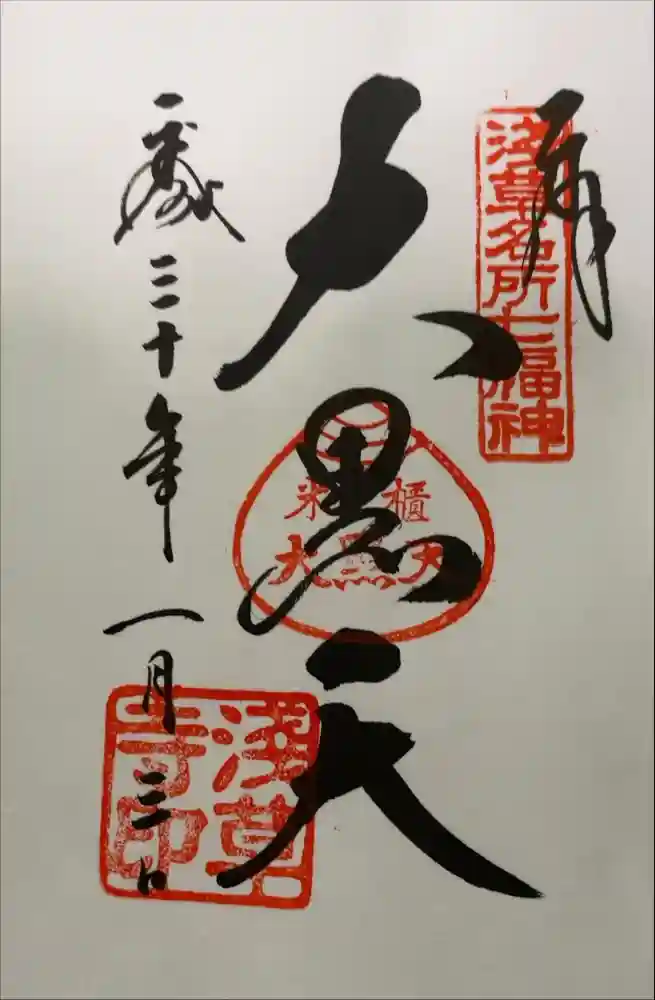 奉拝
浅草名所七福神
大黒天
米櫃
大黒天
歳三十年一月三日
浅草
寺印